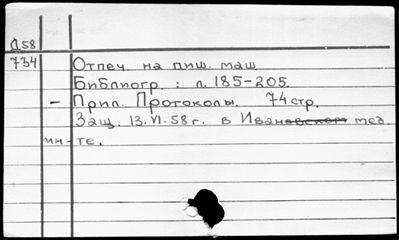 Д58
734 Отпеч. на пиш. маш
Библиогр. : л. 185-205.
- Прил. Протоколы. 74 стр.
Защ. 13.VI.58 г. в Ивановском мед.
ин-те.